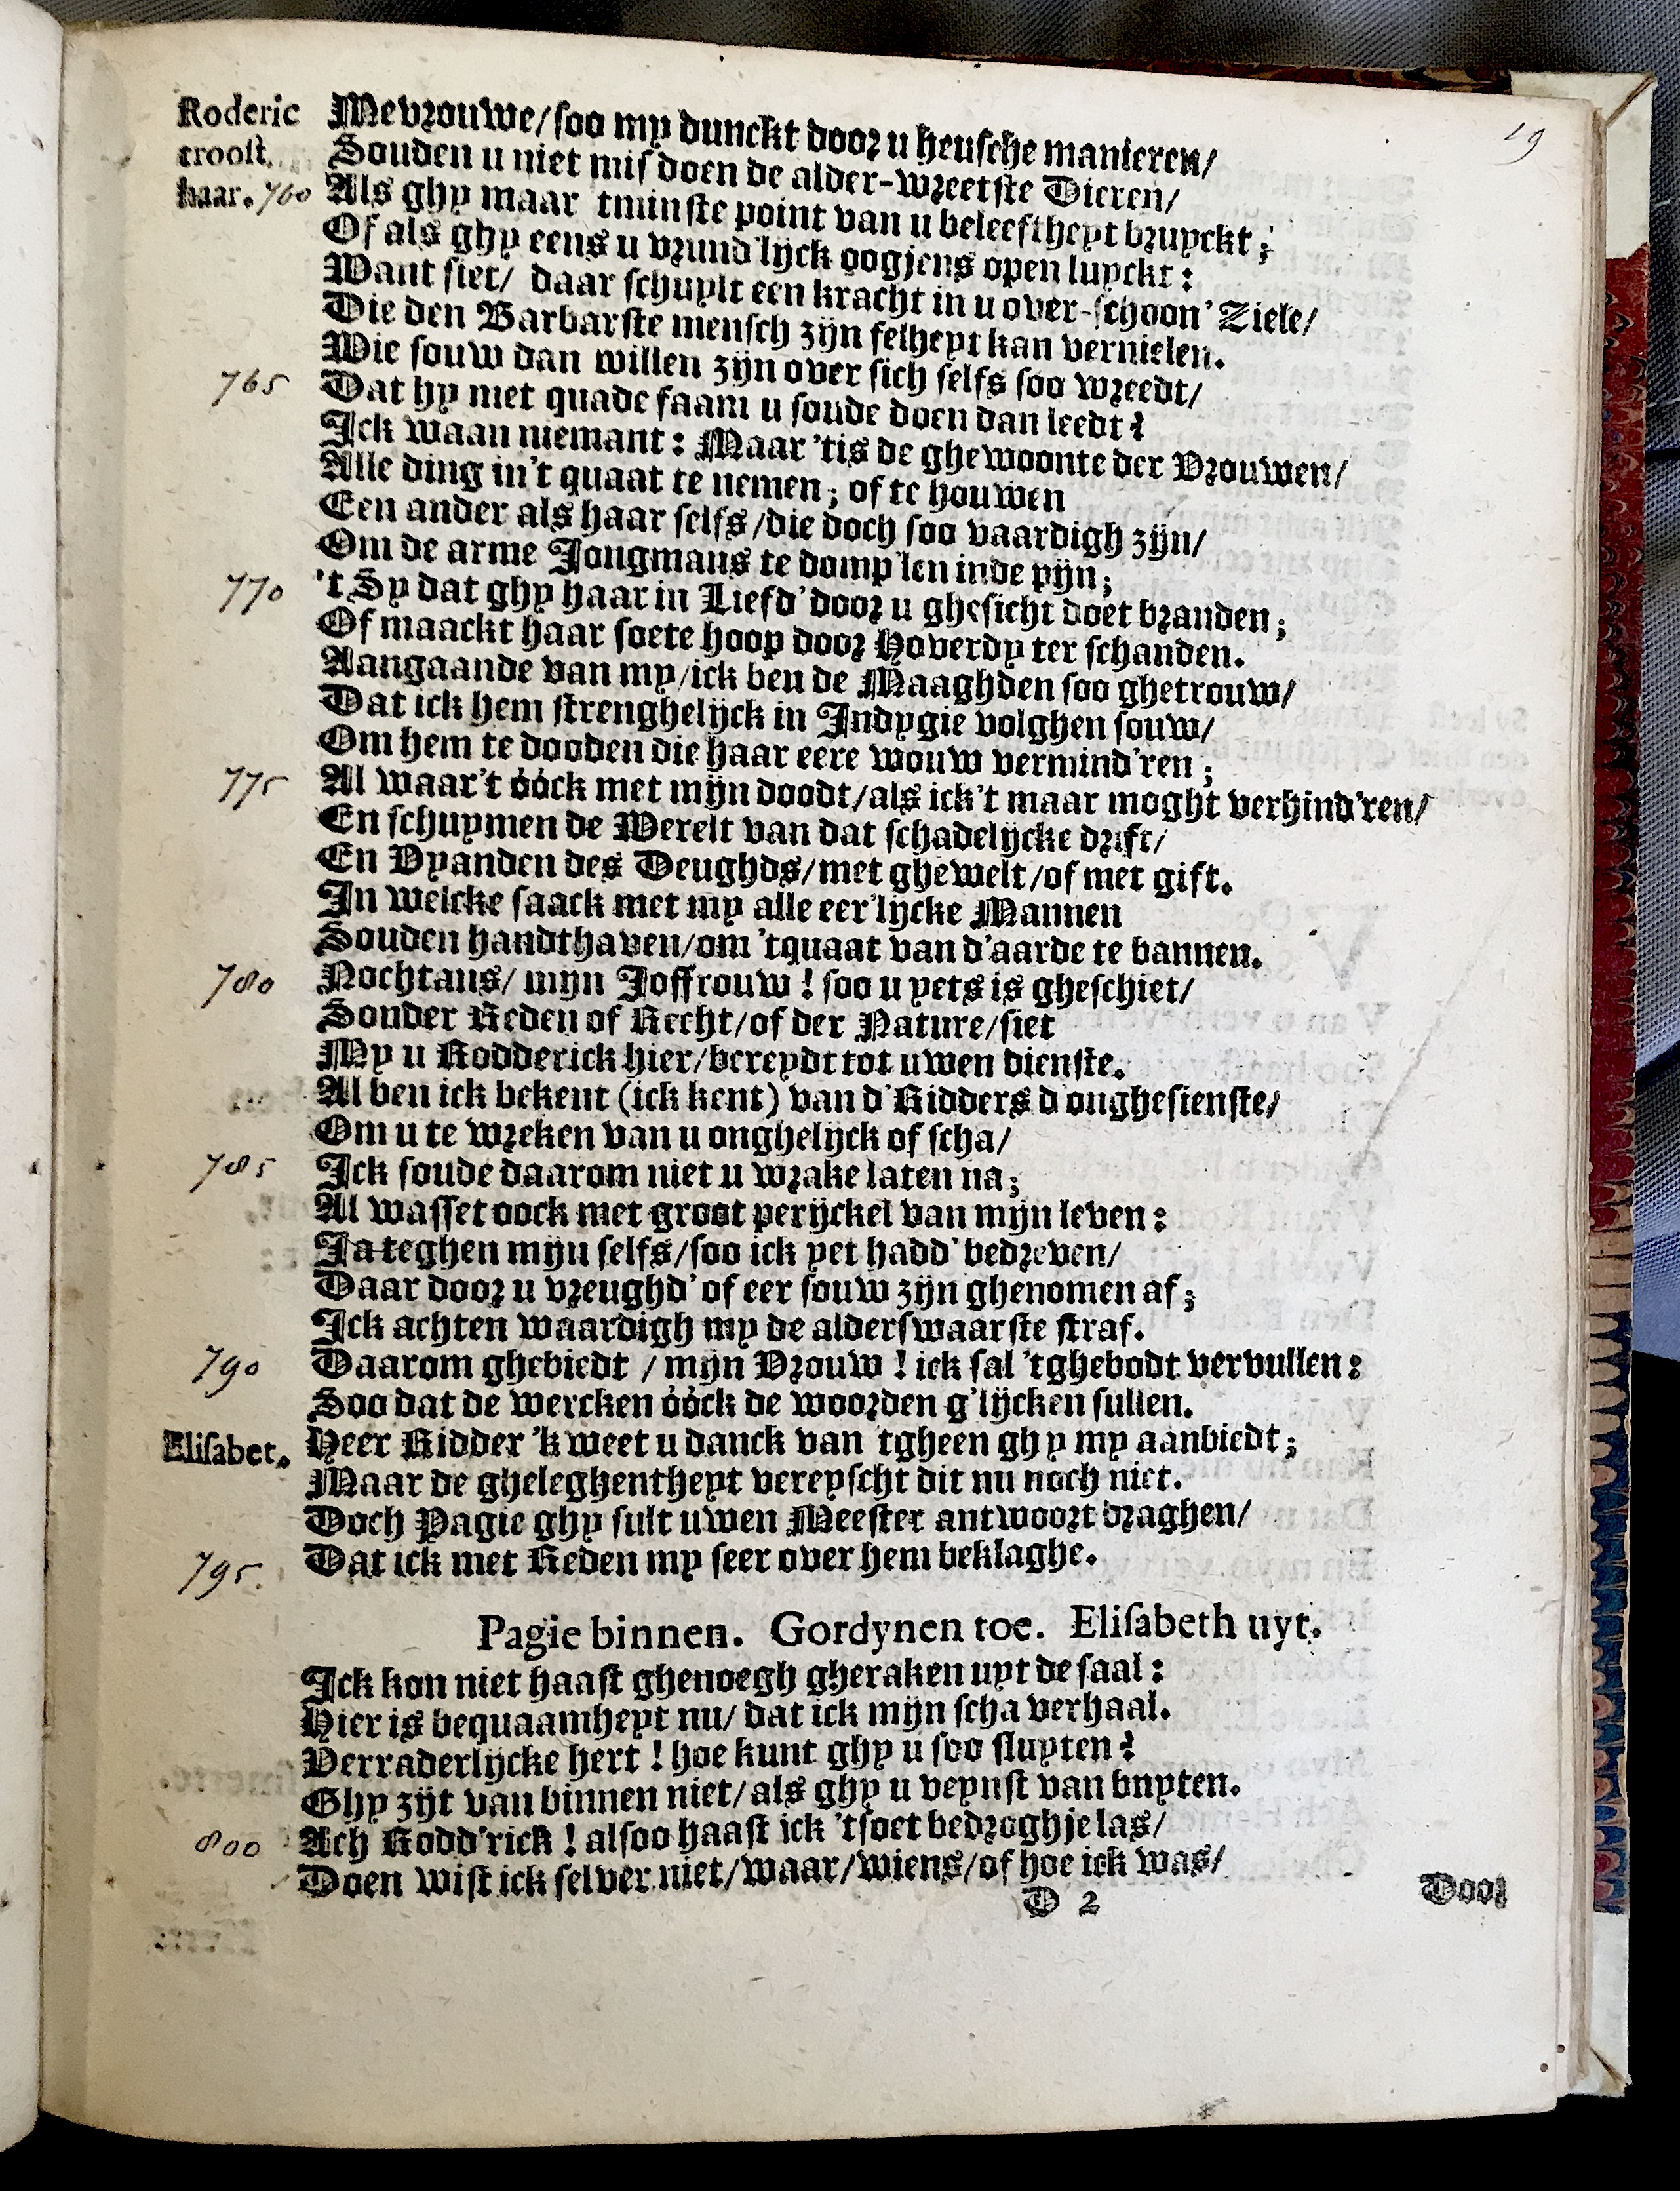 19
Roderic Mevrouwe/ soo my dunckt door u heusche manieren/
troost Souden u niet misdoen de alder-wreetste Dieren/
haar. 760 Als ghy maar tminste point van u beleeftheyt bruyckt;
Of als ghy eens u vrund'lijck oogjens open luyckt:
Want siet/ daar schuylt een kracht in u over-schoon' Ziele/
Die den Barbarste mensch zijn felheyt kan vernielen.
Wie souw dan willen zijn over sich selfs soo wreedt/
765 Dat hy met quade faam u soude doen dan leedt?
Ick waan niemant: Maar 'tis de ghewoonte der Vrouwen/
Alle ding in't quaat te nemen; of te houwen
Een ander als haar selfs/ die doch soo vaardigh zijn/
Om de arme Jongmans te domp'len inde pijn;
770 't Sy dat ghy haar in Liefd' door u ghesicht doet branden;
Of maackt haar soete hoop door Hoverdy ter schanden.
Aangaande van my/ ick ben de Maaghden soo ghetrouw/
Dat ick hem strenghelijck in Indygie volghen souw/
Om hem te dooden die haar eere wouw vermind'ren;
775 Al waar't óóck met mijn doodt/ als ick't maar moght verhind'ren/
En schuymen de Werelt van dat schadelijcke drift/
En Vyanden des Deughds/ met ghewelt/ of met gift.
In welcke saack met my alle eer'lijcke Mannen
Souden handthaven/ om 'tquaat van d'aarde te bannen.
780 Nochtans/ mijn Joffrouw! soo u yets is gheschiet/
Sonder Reden of Recht/ of der Nature/ siet
My u Rodderick hier/ bereydt tot uwen dienste.
Al ben ick bekent (ick kent) van d'Ridders d'onghesienste/
Om u te wreken van u onghelijck of scha/
785 Ick soude daarom niet u wrake laten na;
Al wasset oock met groot perijckel van mijn leven:
Ja teghen mijn selfs/ soo ick yet hadd' bedreven/
Daar door u vreughd' of eer souw zijn ghenomen af;
Ick achten waardigh my de alderswaarste straf.
790 Daarom ghebiedt / mijn Vrouw! ick sal 'tghebodt vervullen:
Soo dat de wercken óóck de woorden g'lijcken sullen.
Elisabet. Heer Ridder 'k weet u danck van tgheen ghy my aanbiedt;
Maar de gheleghentheyt vereyscht dit nu noch niet.
Doch Pagie ghy sult uwen Meester antwoort draghen/
795. Dat ick met Reden my seer over hem beklaghe.
Pagie binnen. Gordynen toe. Elisabeth uyt.
Ick kon niet haast ghenoegh gheraken uyt de saal:
Hier is bequaamheyt nu/ dat ick mijn scha verhaal.
Verraderlijcke hert! hoe kunt ghy u soo sluyten?
Ghy zijt van binnen niet/ als ghy u veynst van bnyten.
800 Ach Rodd'rick! alsoo haast ick 'tsoet bedroghje las/
Doen wist ick selver niet/ waar/ wiens/ of hoe ick was/
D 2 Door